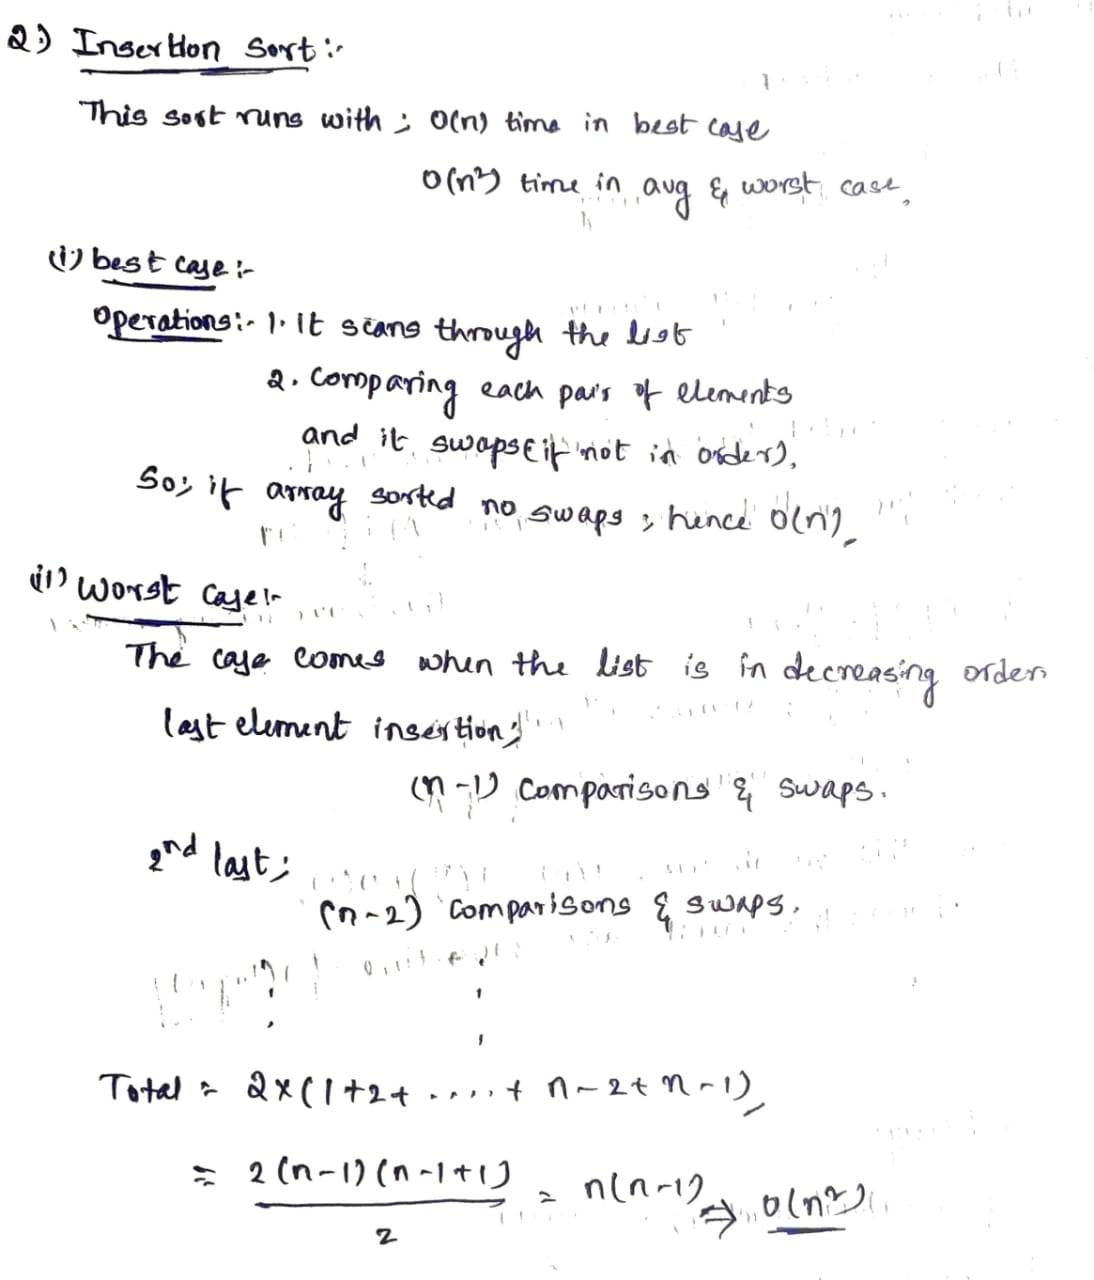 2) Insertion Sort :-
This sort runs with ; O(n) time in best case
O(n²) time in avg & worst case,
(i) best case :-
Operations :- 1. it scans through the list
2. Comparing each pair of elements
and it swaps (if not in order),
So; if array sorted no swaps ; hence O(n),
(ii) Worst Case :-
The case comes when the list is in decreasing order
last element insertion ;
(n-1) Comparisons & swaps.
2nd last ;
(n-2) Comparisons & swaps.
Total = 2×(1+2+.....+ n-2+n-1),
= 2(n-1)(n-1+1) / 2 = n(n-1) ⇒ O(n²)